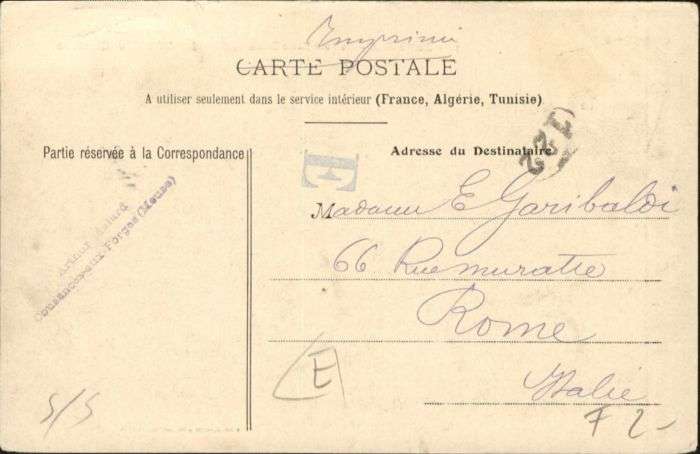 Imprimé
CARTE POSTALE
A utiliser seulement dans le service intérieur (France, Algérie, Tunisie)
Partie réservée à la Correspondance
Adresse du Destinataire
122
E
Madame E Garibaldi
66 Rue muratte
Rome
Italie
Cousances-aux-Forges (Meuse)
E
S/S
F 2-